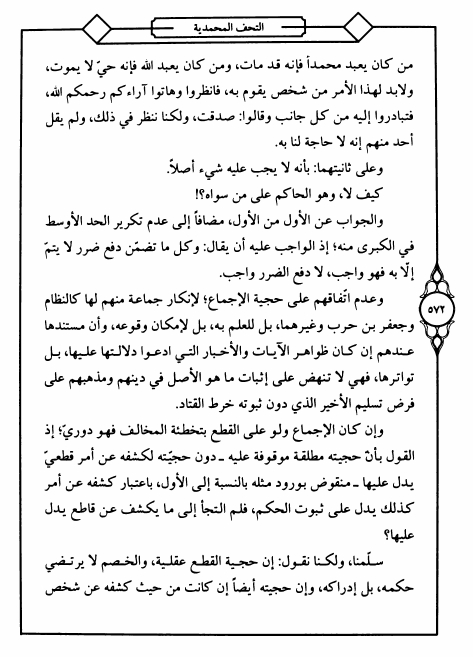 التحف المحمدية
من كان يعبد محمداً فإنه قد مات، ومن كان يعبد الله فإنه حيّ لا يموت،
ولابد لهذا الأمر من شخص يقوم به، فانظروا وهاتوا آراءكم رحمكم الله،
فتبادروا إليه من كل جانب وقالوا: صدقت، ولكنا ننظر في ذلك، ولم يقل
أحد منهم إنه لا حاجة لنا به.
وعلى ثانيتهما: بأنه لا يجب عليه شيء أصلاً.
كيف لا، وهو الحاكم على من سواه؟!
والجواب عن الأول من الأول، مضافاً إلى عدم تكرير الحد الأوسط
في الكبرى منه؛ إذ الواجب عليه أن يقال: وكل ما تضمّن دفع ضرر لا يتمّ
إلّا به فهو واجب، لا دفع الضرر واجب.
وعدم اتّفاقهم على حجية الإجماع؛ لإنكار جماعة منهم لها كالنظام
وجعفر بن حرب وغيرهما، بل للعلم به، بل لإمكان وقوعه، وأن مستندها
عندهم إن كان ظواهر الآيات والأخبار التي ادعوا دلالتها عليها، بل
تواترها، فهي لا تنهض على إثبات ما هو الأصل في دينهم ومذهبهم على
فرض تسليم الأخير الذي دون ثبوته خرط القتاد.
وإن كان الإجماع ولو على القطع بتخطئة المخالف فهو دوريّ؛ إذ
القول بأنّ حجيته مطلقة موقوفة عليه ــ دون حجيّته لكشفه عن أمر قطعيّ
يدل عليها ــ منقوض بورود مثله بالنسبة إلى الأول، باعتبار كشفه عن أمر
كذلك يدل على ثبوت الحكم، فلم التجأ إلى ما يكشف عن قاطع يدل
عليها؟
سلّمنا، ولكنا نقول: إن حجية القطع عقلية، والخصم لا يرتضي
حكمه، بل إدراكه، وإن حجيته أيضاً إن كانت من حيث كشفه عن شخص
٥٧٢